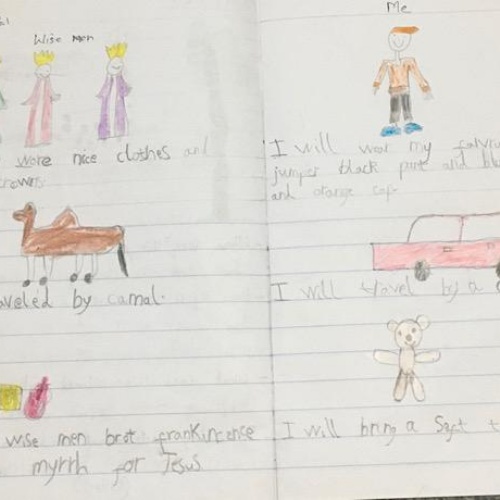 Wise men
wore nice clothes and
crowns
aveled by camal.
wise men brot frankincense
myrrh for Jesus
Me
I will wear my
jumper black pant and
and orange cap
I will travel by a
I will bring a Soft t